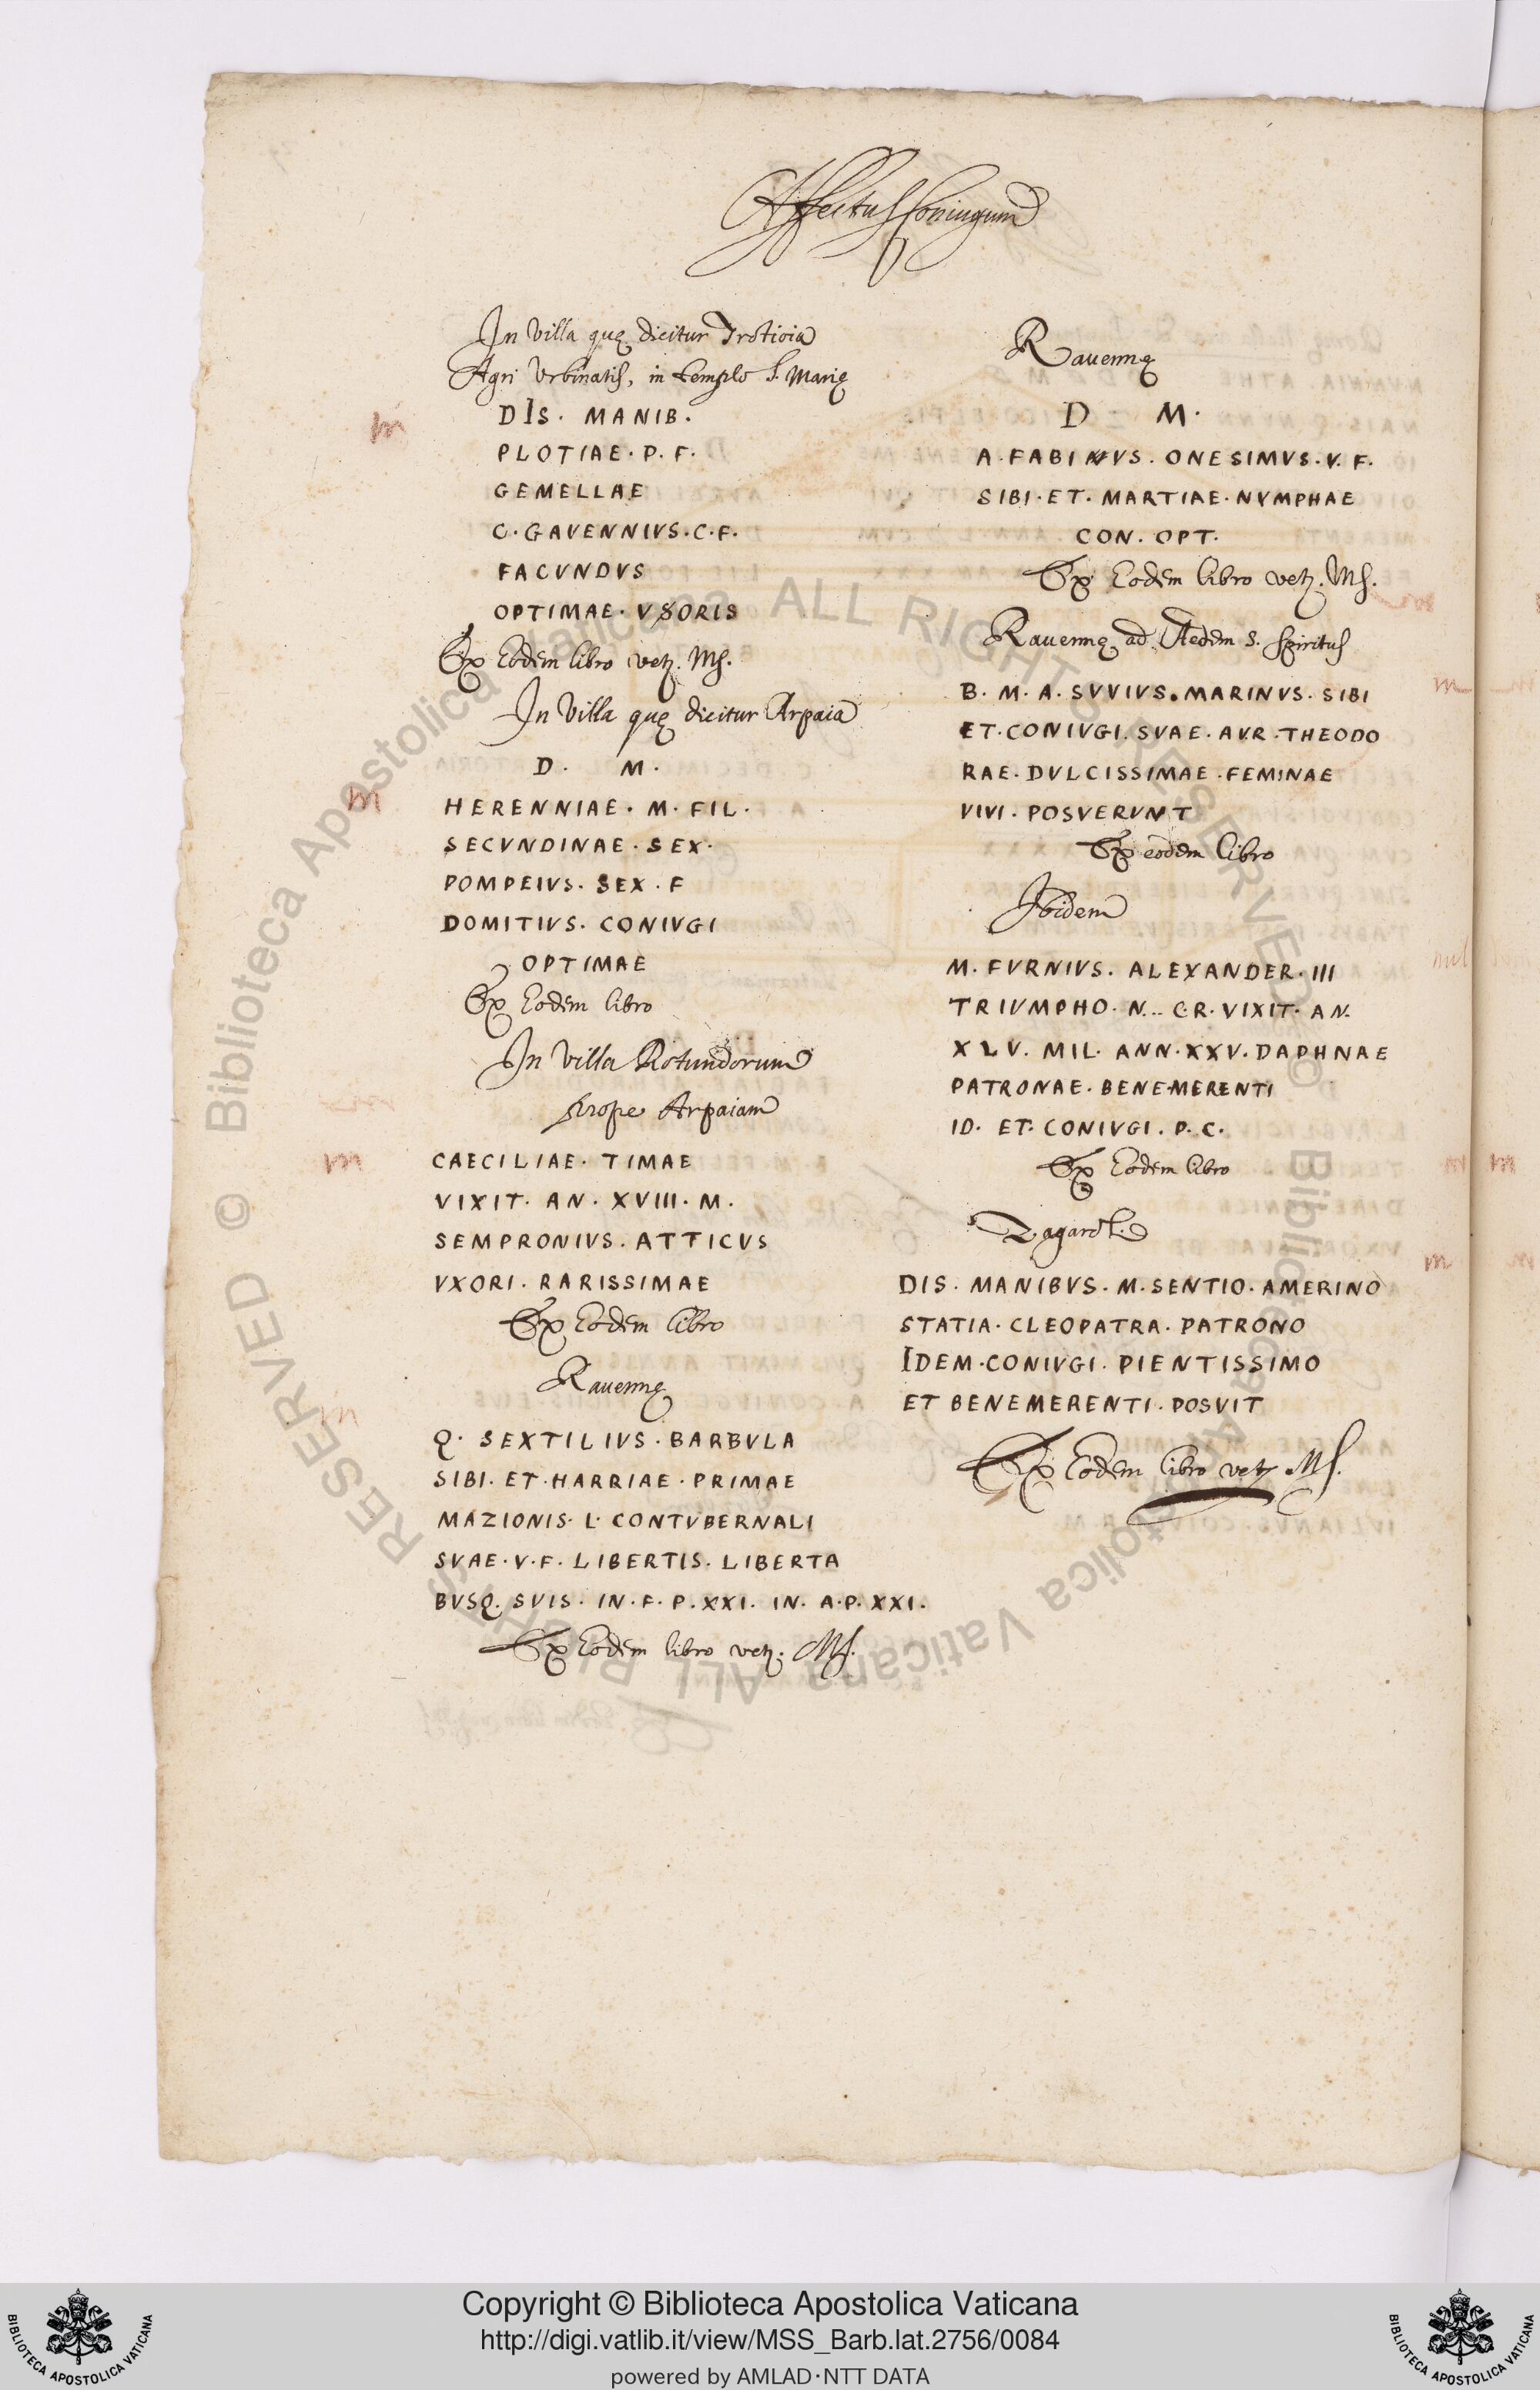 Affectus Coniugum
In Villa quę dicitur Troticia
Agri Urbinatis, in templo S. Marię
DIS. MANIB.
PLOTIAE. P. F.
GEMELLAE
C. GAVENNIVS. C. F.
FACVNDVS
OPTIMAE. VXORIS
Ex Eodem libro vet. Ms.
In Villa quę dicitur Arpaia
D. M.
HERENNIAE. M. FIL.
SECVNDINAE. SEX.
POMPEIVS. SEX. F
DOMITIVS. CONIVGI
OPTIMAE
Ex Eodem libro
In Villa Rotundorum
prope Arpaiam
CAECILIAE. TIMAE
VIXIT. AN. XVIII. M.
SEMPRONIVS. ATTICVS
VXORI. RARISSIMAE
Ex Eodem libro
Rauennę
Q. SEXTILIVS. BARBVLA
SIBI. ET. HARRIAE. PRIMAE
MAZIONIS. L. CONTVBERNALI
SVAE. V. F. LIBERTIS. LIBERTA
BVSQ. SVIS. IN. F. P. XXI. IN. A. P. XXI.
Ex Eodem libro vet. Ms.
Rauennę
D M.
A. FABINVS. ONESIMVS. V. F.
SIBI. ET. MARTIAE. NYMPHAE
CON. OPT.
Ex Eodem libro vet. Ms.
Rauennę ad Aedem S. Spiritus
B. M. A. SVVIVS. MARINVS. SIBI
ET. CONIVGI. SVAE. AVR. THEODO
RAE. DVLCISSIMAE. FEMINAE
VIVI. POSVERVNT
Ex eodem libro
Ibidem
M. FVRNIVS. ALEXANDER. III
TRIVMPHO. N... C.R. VIXIT. AN.
XLV. MIL. ANN. XXV. DAPHNAE
PATRONAE. BENEMERENTI
ID. ET. CONIVGI. P. C.
Ex Eodem libro
Zagarol.
DIS. MANIBVS. M. SENTIO. AMERINO
STATIA. CLEOPATRA. PATRONO
IDEM. CONIVGI. PIENTISSIMO
ET BENEMERENTI. POSVIT
Ex Eodem libro vet. Ms.
Copyright © Biblioteca Apostolica Vaticana
http://digi.vatlib.it/view/MSS_Barb.lat.2756/0084
powered by AMLAD·NTT DATA